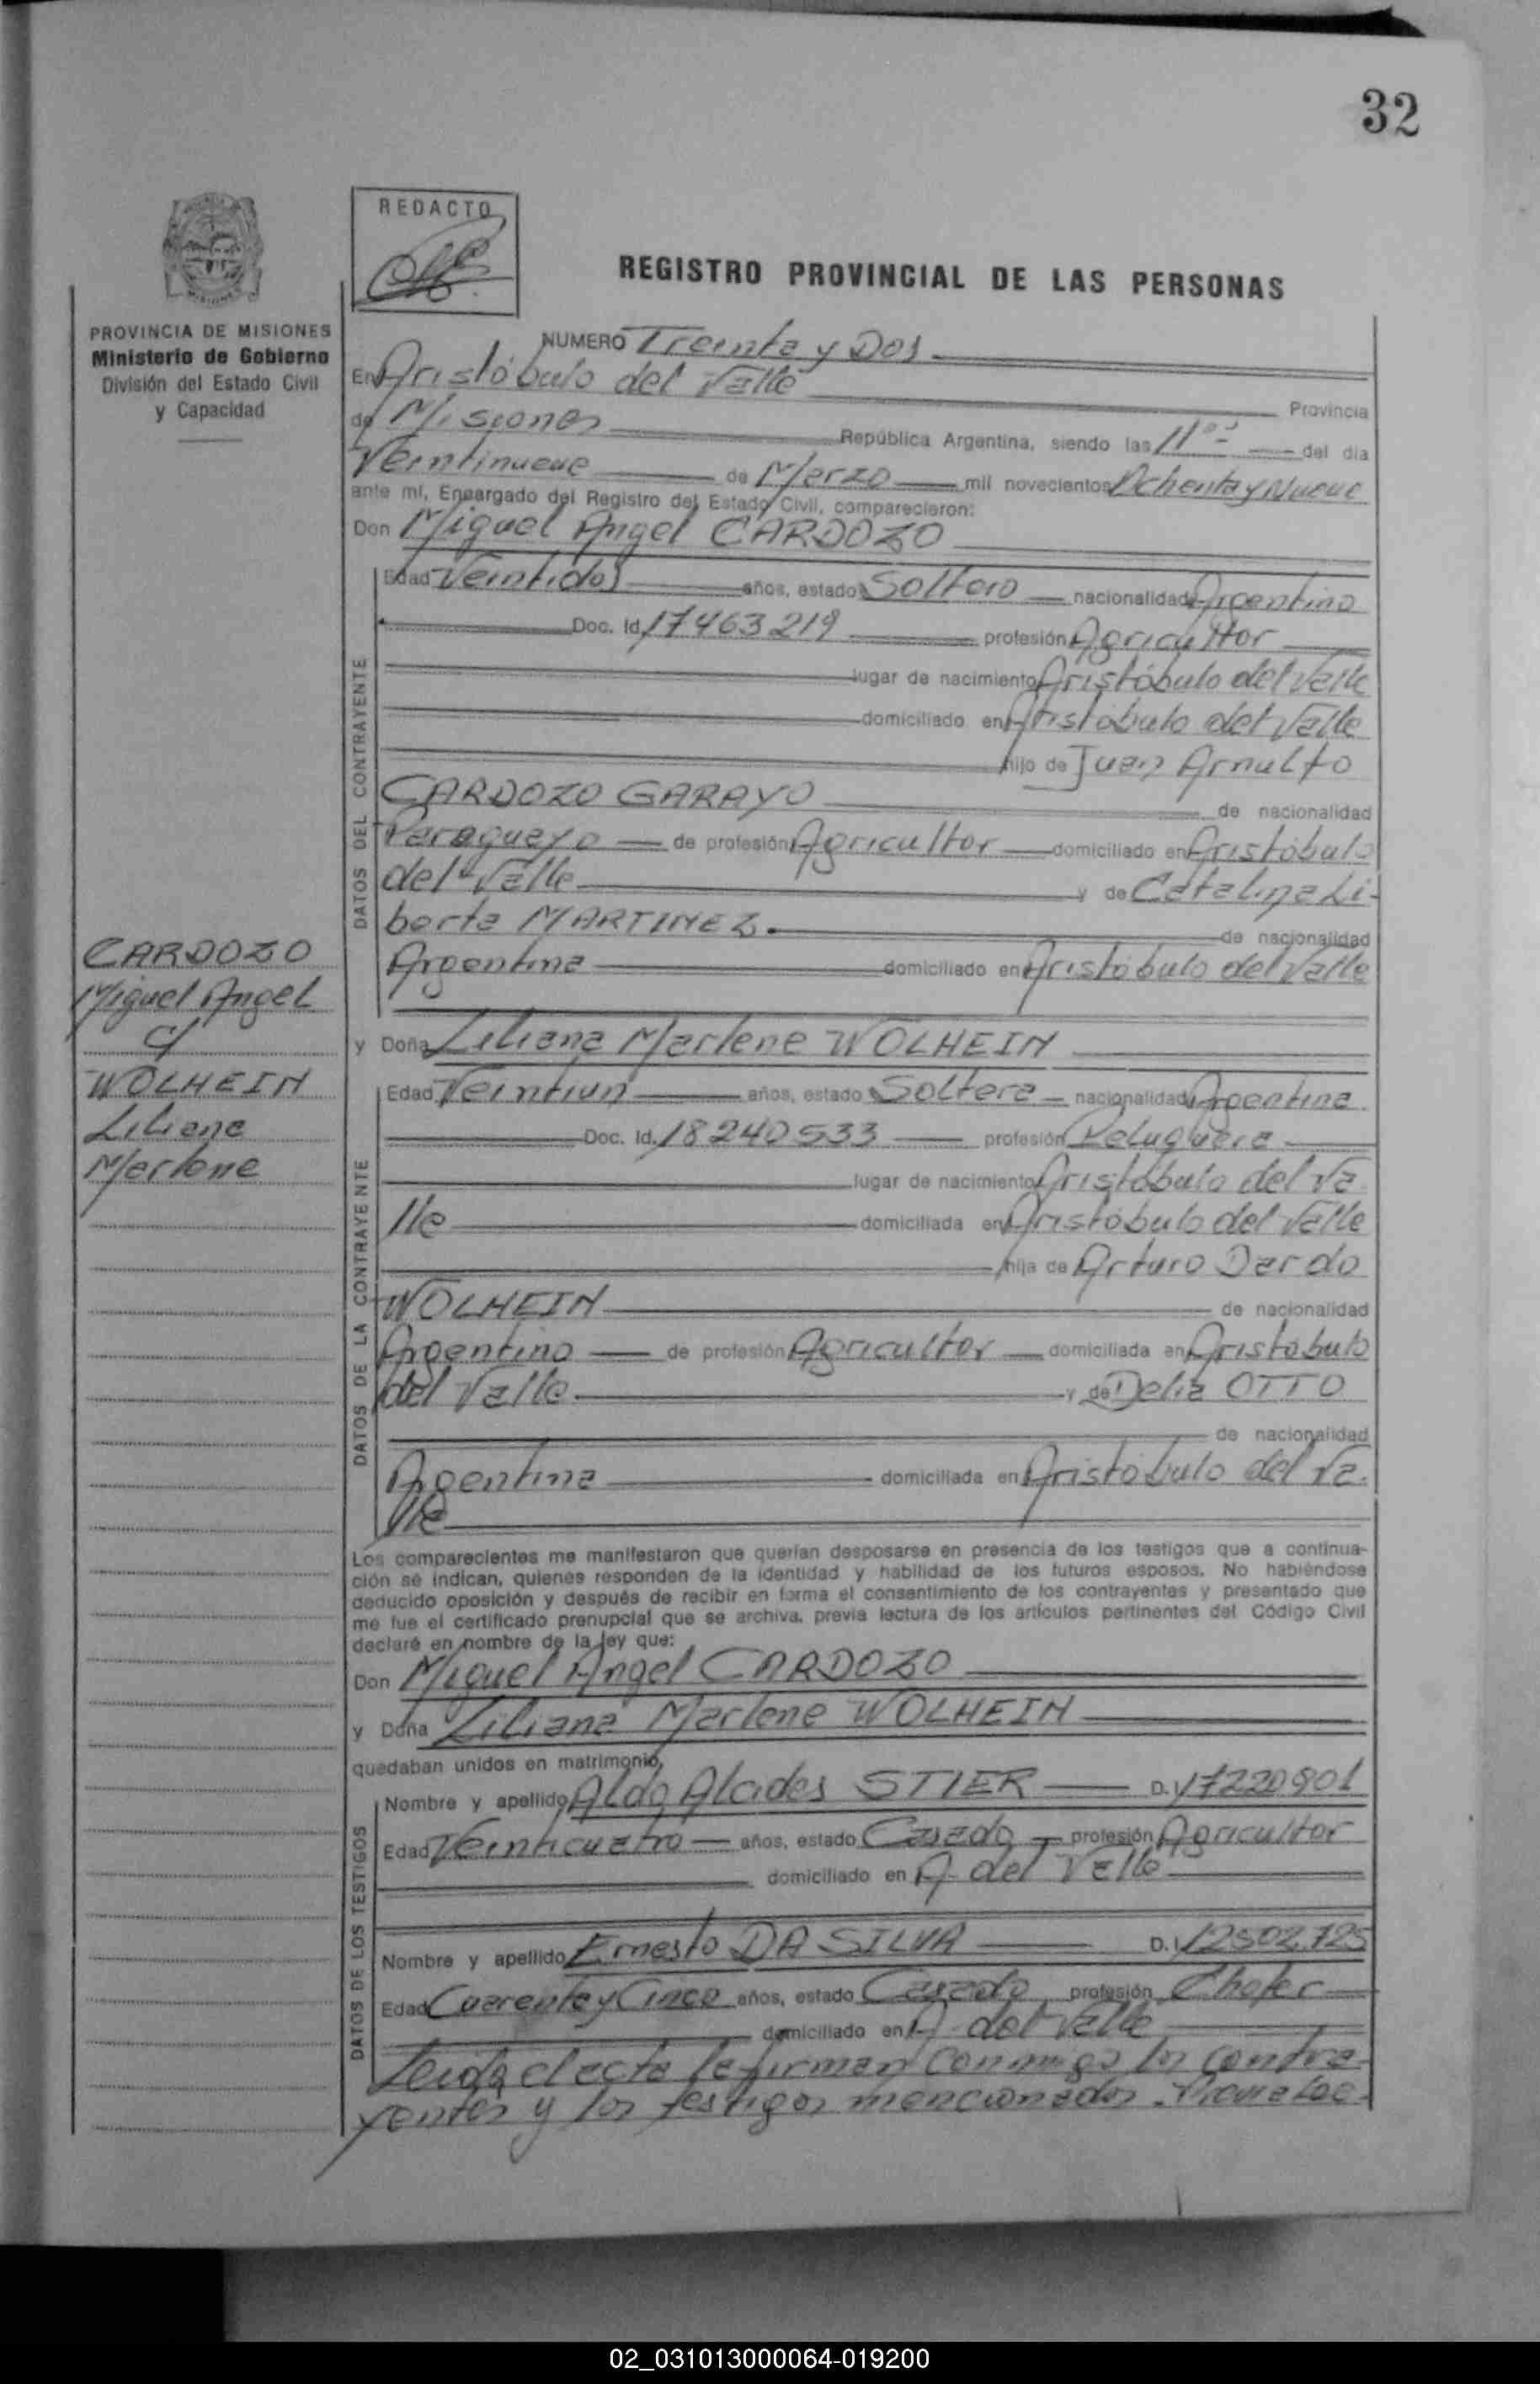 32
REDACTO
REGISTRO PROVINCIAL DE LAS PERSONAS
MISIONES
PROVINCIA DE MISIONES
Ministerio de Gobierno
División del Estado Civil
y Capacidad
NUMERO Treinta y Dos
En Aristóbulo del Valle
Provincia
de Misiones República Argentina, siendo las 11 00 del día
Veintinueve de Marzo mil novecientos Ochenta y Nueve
ante mí, Encargado del Registro del Estado Civil, comparecieron:
Don Miguel Angel CARDOZO
DATOS DEL CONTRAYENTE
Edad Veintidos años, estado Soltero nacionalidad Argentino
Doc. Id. 17463219 profesión Agricultor
lugar de nacimiento Aristóbulo del Valle
domiciliado en Aristóbulo del Valle
hijo de Juan Arnulfo
CARDOZO GARAYO de nacionalidad
Paraguayo de profesión Agricultor domiciliado en Aristóbulo
del Valle y de Catalina Li-
berta MARTINEZ. de nacionalidad
Argentina domiciliado en Aristóbulo del Valle
CARDOZO
Miguel Angel
c/
WOLHEIN
Liliana
Marlene
y Doña Liliana Marlene WOLHEIN
DATOS DE LA CONTRAYENTE
Edad Veintiun años, estado Soltera nacionalidad Argentina
Doc. Id. 18240533 profesión Peluquera
lugar de nacimiento Aristóbulo del Va
lle domiciliada en Aristóbulo del Valle
hija de Arturo Dardo
WOLHEIN de nacionalidad
Argentino de profesión Agricultor domiciliada en Aristóbulo
del Valle y de Delia OTTO
de nacionalidad
Argentina domiciliada en Aristóbulo del Va.
lle
Los comparecientes me manifestaron que querían desposarse en presencia de los testigos que a continua-
ción se indican, quienes responden de la identidad y habilidad de los futuros esposos. No habiéndose
deducido oposición y después de recibir en forma el consentimiento de los contrayentes y presentado que
me fue el certificado prenupcial que se archiva, previa lectura de los artículos pertinentes del Código Civil
declaré en nombre de la ley que:
Don Miguel Angel CARDOZO
y Doña Liliana Marlene WOLHEIN
quedaban unidos en matrimonio,
DATOS DE LOS TESTIGOS
Nombre y apellido Aldo Alcides STIER D.I. 17220901
Edad Veinticuatro años, estado Casado profesión Agricultor
domiciliado en A. del Valle
Nombre y apellido Ernesto DA SILVA D.I. 12502725
Edad Cuarenta y Cinco años, estado Casado profesión Chofer
domiciliado en A. del Valle
Leida el acta la firman conmigo los contra
yentes y los testigos mencionados.
02_031013000064-019200